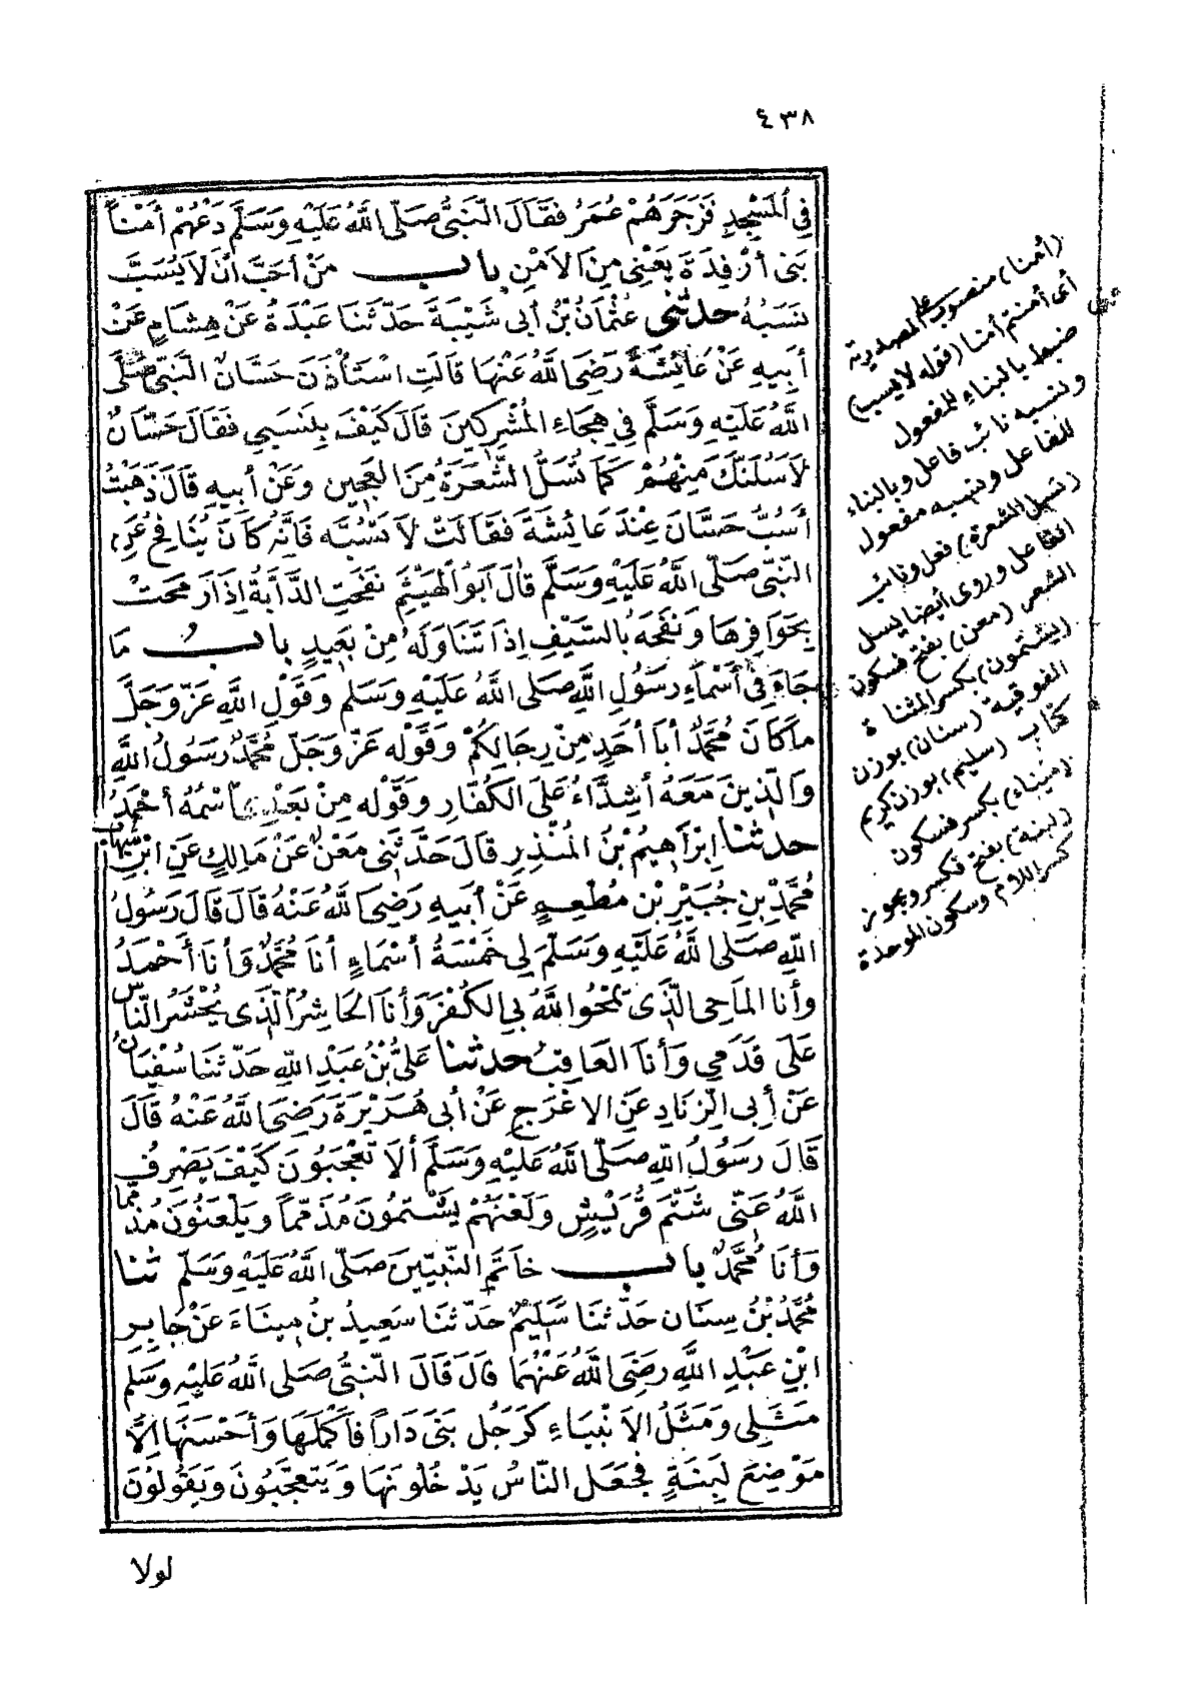 ٤٣٨
فِي الْمَسْجِدِ فَزَجَرَهُمْ عُمَرُ فَقَالَ النَّبِيُّ صَلَّى اللَّهُ عَلَيْهِ وَسَلَّمَ دَعْهُمْ أَمْناً
بَنِي أَرْفِدَةَ يَعْنِي مِنَ الْأَمْنِ بَاب مَنْ أَحَبَّ أَنْ لَا يُسَبَّ
نَسَبُهُ حدثني عُثْمَانُ بْنُ أَبِي شَيْبَةَ حَدَّثَنَا عَبْدَةُ عَنْ هِشَامٍ عَنْ
أَبِيهِ عَنْ عَائِشَةَ رَضِيَ اللَّهُ عَنْهَا قَالَتِ اسْتَأْذَنَ حَسَّانُ النَّبِيَّ صَلَّى
اللَّهُ عَلَيْهِ وَسَلَّمَ فِي هِجَاءِ الْمُشْرِكِينَ قَالَ كَيْفَ بِنَسَبِي فَقَالَ حَسَّانُ
لَأَسُلَّنَّكَ مِنْهُمْ كَمَا تُسَلُّ الشَّعَرَةُ مِنَ الْعَجِينِ وَعَنْ أَبِيهِ قَالَ ذَهَبْتُ
أَسُبُّ حَسَّانَ عِنْدَ عَائِشَةَ فَقَالَتْ لَا تَسُبَّهُ فَإِنَّهُ كَانَ يُنَافِحُ عَنِ
النَّبِيِّ صَلَّى اللَّهُ عَلَيْهِ وَسَلَّمَ قَالَ أَبُو الْهَيْثَمِ نَفَحَتِ الدَّابَّةُ إِذَا رَمَحَتْ
بِحَوَافِرِهَا وَنَفَحَهُ بِالسَّيْفِ إِذَا تَنَاوَلَهُ مِنْ بَعِيدٍ بَابُ مَا
جَاءَ فِي أَسْمَاءِ رَسُولِ اللَّهِ صَلَّى اللَّهُ عَلَيْهِ وَسَلَّمَ وَقَوْلِ اللَّهِ عَزَّ وَجَلَّ
مَا كَانَ مُحَمَّدٌ أَبَا أَحَدٍ مِنْ رِجَالِكُمْ وَقَوْلِهِ عَزَّ وَجَلَّ مُحَمَّدٌ رَسُولُ اللَّهِ
وَالَّذِينَ مَعَهُ أَشِدَّاءُ عَلَى الْكُفَّارِ وَقَوْلِهِ مِنْ بَعْدِي اسْمُهُ أَحْمَدُ
حدثنا إِبْرَاهِيمُ بْنُ الْمُنْذِرِ قَالَ حَدَّثَنِي مَعْنٌ عَنْ مَالِكٍ عَنِ ابْنِ شِهَابٍ
مُحَمَّدِ بْنِ جُبَيْرِ بْنِ مُطْعِمٍ عَنْ أَبِيهِ رَضِيَ اللَّهُ عَنْهُ قَالَ قَالَ رَسُولُ
اللَّهِ صَلَّى اللَّهُ عَلَيْهِ وَسَلَّمَ لِي خَمْسَةُ أَسْمَاءٍ أَنَا مُحَمَّدٌ وَأَنَا أَحْمَدُ
وَأَنَا الْمَاحِي الَّذِي يَمْحُو اللَّهُ بِي الْكُفْرَ وَأَنَا الْحَاشِرُ الَّذِي يُحْشَرُ النَّاسُ
عَلَى قَدَمِي وَأَنَا الْعَاقِبُ حدثنا عَلِيُّ بْنُ عَبْدِ اللَّهِ حَدَّثَنَا سُفْيَانُ
عَنْ أَبِي الزِّنَادِ عَنِ الْأَعْرَجِ عَنْ أَبِي هُرَيْرَةَ رَضِيَ اللَّهُ عَنْهُ قَالَ
قَالَ رَسُولُ اللَّهِ صَلَّى اللَّهُ عَلَيْهِ وَسَلَّمَ أَلَا تَعْجَبُونَ كَيْفَ يَصْرِفُ
اللَّهُ عَنِّي شَتْمَ قُرَيْشٍ وَلَعْنَهُمْ يَشْتِمُونَ مُذَمَّماً وَيَلْعَنُونَ مُذَمَّماً
وَأَنَا مُحَمَّدٌ بَاب خَاتَمِ النَّبِيِّينَ صَلَّى اللَّهُ عَلَيْهِ وَسَلَّمَ ثنا
مُحَمَّدُ بْنُ سِنَانٍ حَدَّثَنَا سَلِيمٌ حَدَّثَنَا سَعِيدُ بْنُ مِينَاءَ عَنْ جَابِرِ
ابْنِ عَبْدِ اللَّهِ رَضِيَ اللَّهُ عَنْهُمَا قَالَ قَالَ النَّبِيُّ صَلَّى اللَّهُ عَلَيْهِ وَسَلَّمَ
مَثَلِي وَمَثَلُ الْأَنْبِيَاءِ كَرَجُلٍ بَنَى دَاراً فَأَكْمَلَهَا وَأَحْسَنَهَا إِلَّا
مَوْضِعَ لَبِنَةٍ فَجَعَلَ النَّاسُ يَدْخُلُونَهَا وَيَتَعَجَّبُونَ وَيَقُولُونَ
لولا
(أمنا) منصوب على المصدرية
أى أمنتم أمنا (قوله لايسب)
ضبط بالبناء للمفعول
ونسبه نائب فاعل وبالبناء
للفاعل ونسبه مفعول
(تسل الشعرة) فعل ونائب
الفاعل وروى أيضا يسل
الشعر (معن) بفتح فسكون
(يشتمون) بكسر المثناة
الفوقية (سنان) بوزن
كتاب (سليم) بوزن كريم
(ميناء) بكسر فسكون
(لبنة) بفتح فكسر ويجوز
كسر اللام وسكون الموحدة